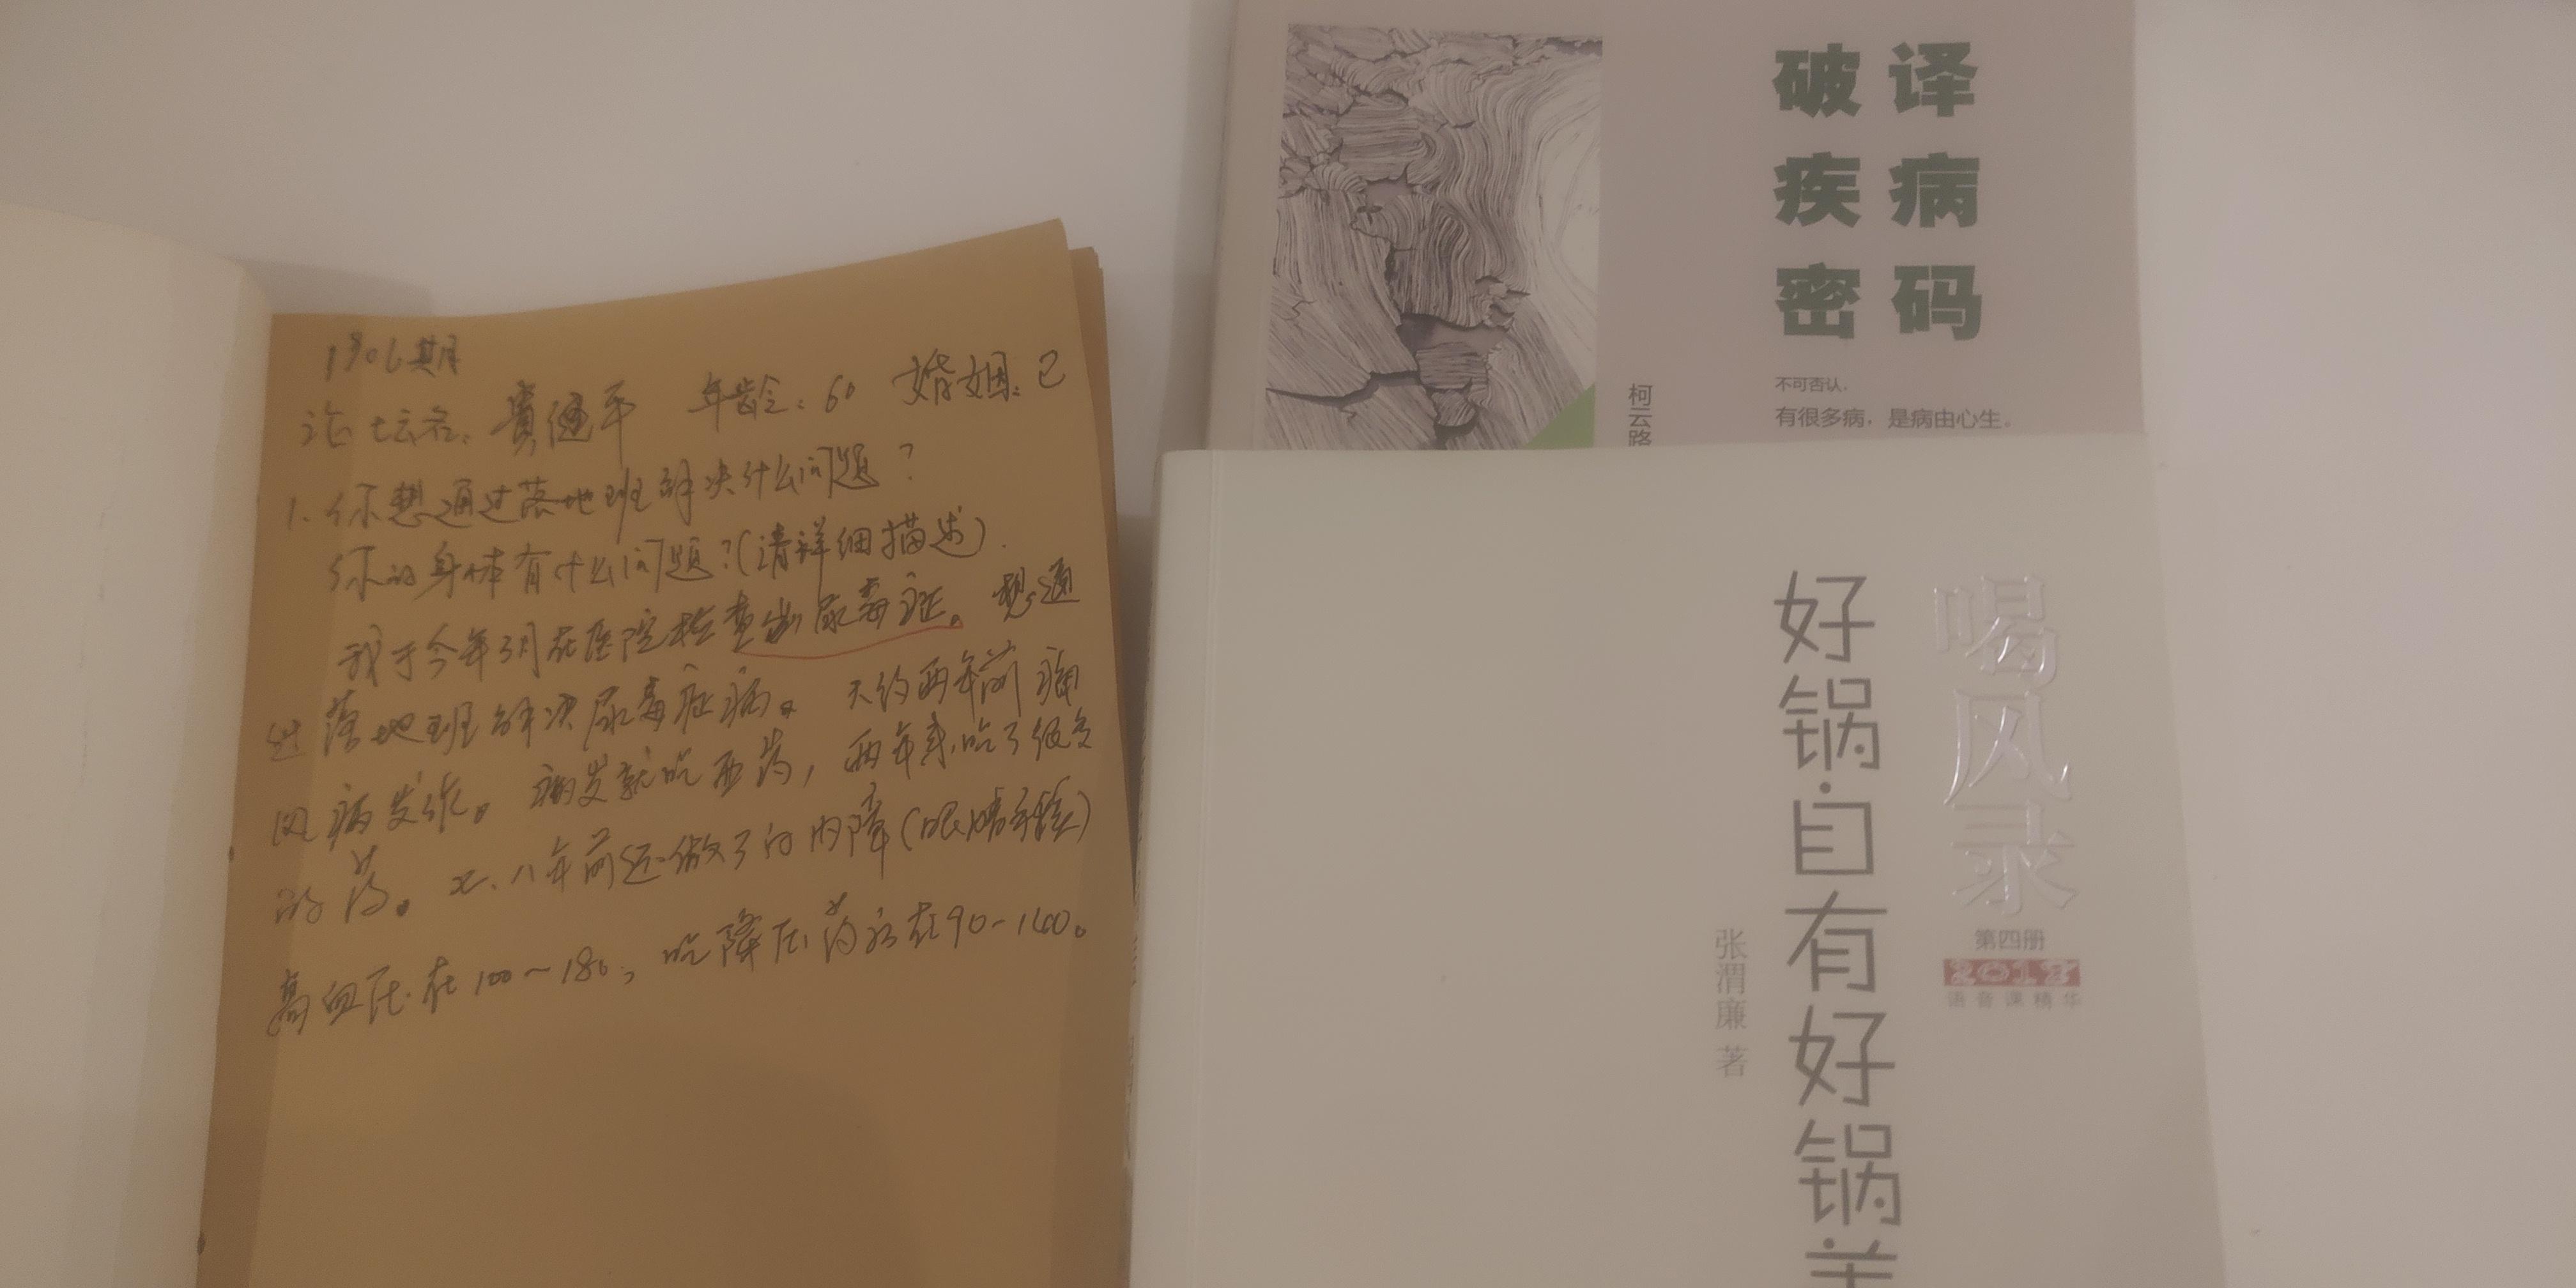 1906期
论坛名：黄健平 年龄：60 婚姻：已
1. 你想通过落地班解决什么问题？
你的身体有什么问题？(请详细描述).
我于今年3月在医院检查出尿毒症。想通
过落地班解决尿毒症病。大约两年前痛
风病发作。痛发就吃西药，两年来吃了很多
的药。七、八年前还做了白内障(眼睛手术)
高血压在100～180，吃降压药后在90-140。
破译
疾病
密码
不可否认，
有很多病，是病由心生。
柯云路
喝风录
第四册
2018
语音课精华
好锅·自有好锅盖
张渭廉 著